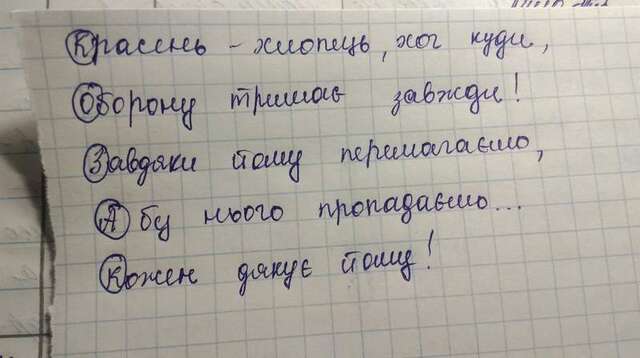 Красень - хлопець, хоч куди,
Оборону тримає завжди!
Завдяки йому перемагаємо,
А бу нього пропадаємо...
Кожен дякує йому!